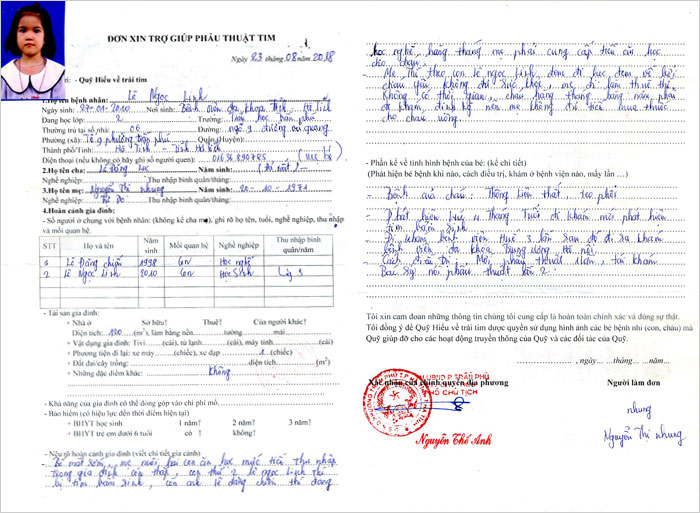 ĐƠN XIN TRỢ GIÚP PHẪU THUẬT TIM
Ngày 23 tháng 08 năm 2018
- Quỹ Hiểu về trái tim
1.Họ tên bệnh nhân: Lê Ngọc Linh
Ngày sinh: 27-01-2010 Nơi sinh: Bệnh viện đa khoa Tỉnh Hà Tĩnh
Đang học lớp: 2 Trường: Tiểu học trần phú
Thường trú tại số nhà: 06 Đường: ngõ 9 đường
Tổ 9 phường trần phú Quận (Huyện):
Thành phố/Tỉnh: Hà Tĩnh - Tỉnh Hà Tĩnh
Điện thoại (nếu không có hãy ghi số người quen): 01636890785 (mẹ bé)
2.Họ tên cha: Lê Đăng Năm sinh: (đã mất)
Nghề nghiệp: Thu nhập bình quân/tháng:
3.Họ tên mẹ: Nguyễn Thị Nhung Năm sinh: 20-10-1971
Nghề nghiệp: Tự Do Thu nhập bình quân/tháng:
4.Hoàn cảnh gia đình:
- Số người ở chung với bệnh nhân: (không kể cha mẹ), ghi rõ họ tên, tuổi, nghề nghiệp, thu nhập
và mối quan hệ.
STT Họ và tên Năm sinh Mối quan hệ Nghề nghiệp Thu nhập bình quân/năm
1 Lê Đăng chiến 1998 con Học nghề
2 Lê Ngọc Linh 2010 con Học Sinh Lớp 3
- Tài sản gia đình:
+ Nhà ở Sở hữu? Thuê? Của người khác?
Diện tích: 120 (m²), làm bằng nền tường mái
+ Vật dụng gia đình: Tivi (cái), tủ lạnh (cái), máy tính (cái)
+ Phương tiện đi lại: xe máy (chiếc), xe đạp 1 (chiếc)
+ Đất đai/cây trồng: diện tích (m²)
+ Những đặc điểm khác: Không
- Khả năng của gia đình có thể đóng góp vào chi phí mổ
- Bảo hiểm (có hiệu lực đến thời điểm hiện tại)
+ BHYT học sinh 1 năm? 2 năm? 3 năm?
+ BHYT trẻ em dưới 6 tuổi có ? không?
- Nêu rõ hoàn cảnh gia đình (viết chi tiết gia cảnh)
Bố mất sớm, mẹ nuôi hai con ăn học mức tiền thu nhập
trong gia đình còn thấp, con thứ 2 lê ngọc linh thì
bị tim bẩm sinh, còn anh lê đăng chiến thì đang
học nghề, hàng tháng mẹ phải cung cấp tiền ăn học
cho cháu.
- Mẹ thì theo con lê ngọc linh đem đi học đem về bởi
cháu yếu không đủ sức khỏe, mẹ đi làm thuê thì
không có thời gian, cháu hàng tháng hàng năm phải
đi khám định kỳ nên mẹ không đủ tiền mua thuốc
cho cháu uống.
- Phần kể về tình hình bệnh của bé: (kể chi tiết)
(Phát hiện bệnh khi nào, cách điều trị, khám ở bệnh viện nào, mấy lần ...)
- Bệnh của cháu: Thông liên thất, teo phổi
- Phát hiện lúc 4 tháng tuổi đi khám mới phát hiện
tim bẩm sinh
- Đi khám bệnh viện Huế 3 lần sau đó đi ra khám
bệnh viện đa khoa Hà nội.
- Cách điều trị: Mổ, phẫu thuật 1 lần, tái khám
Bác sỹ nói phẫu thuật lần 2.
Tôi xin cam đoan những thông tin chúng tôi cung cấp là hoàn toàn chính xác và đúng sự thật.
Tôi đồng ý để Quỹ Hiểu về trái tim được quyền sử dụng hình ảnh các bé bệnh nhi (con, cháu) mà
Quỹ giúp đỡ cho các hoạt động truyền thông của Quỹ và các đối tác của Quỹ.
, ngày... tháng ...năm...
Xác nhận của chính quyền địa phương Người làm đơn
TM.UBND P TRẦN PHÚ
PHÓ CHỦ TỊCH
Nhung
Nguyễn Thế Anh
Nguyễn Thị Nhung